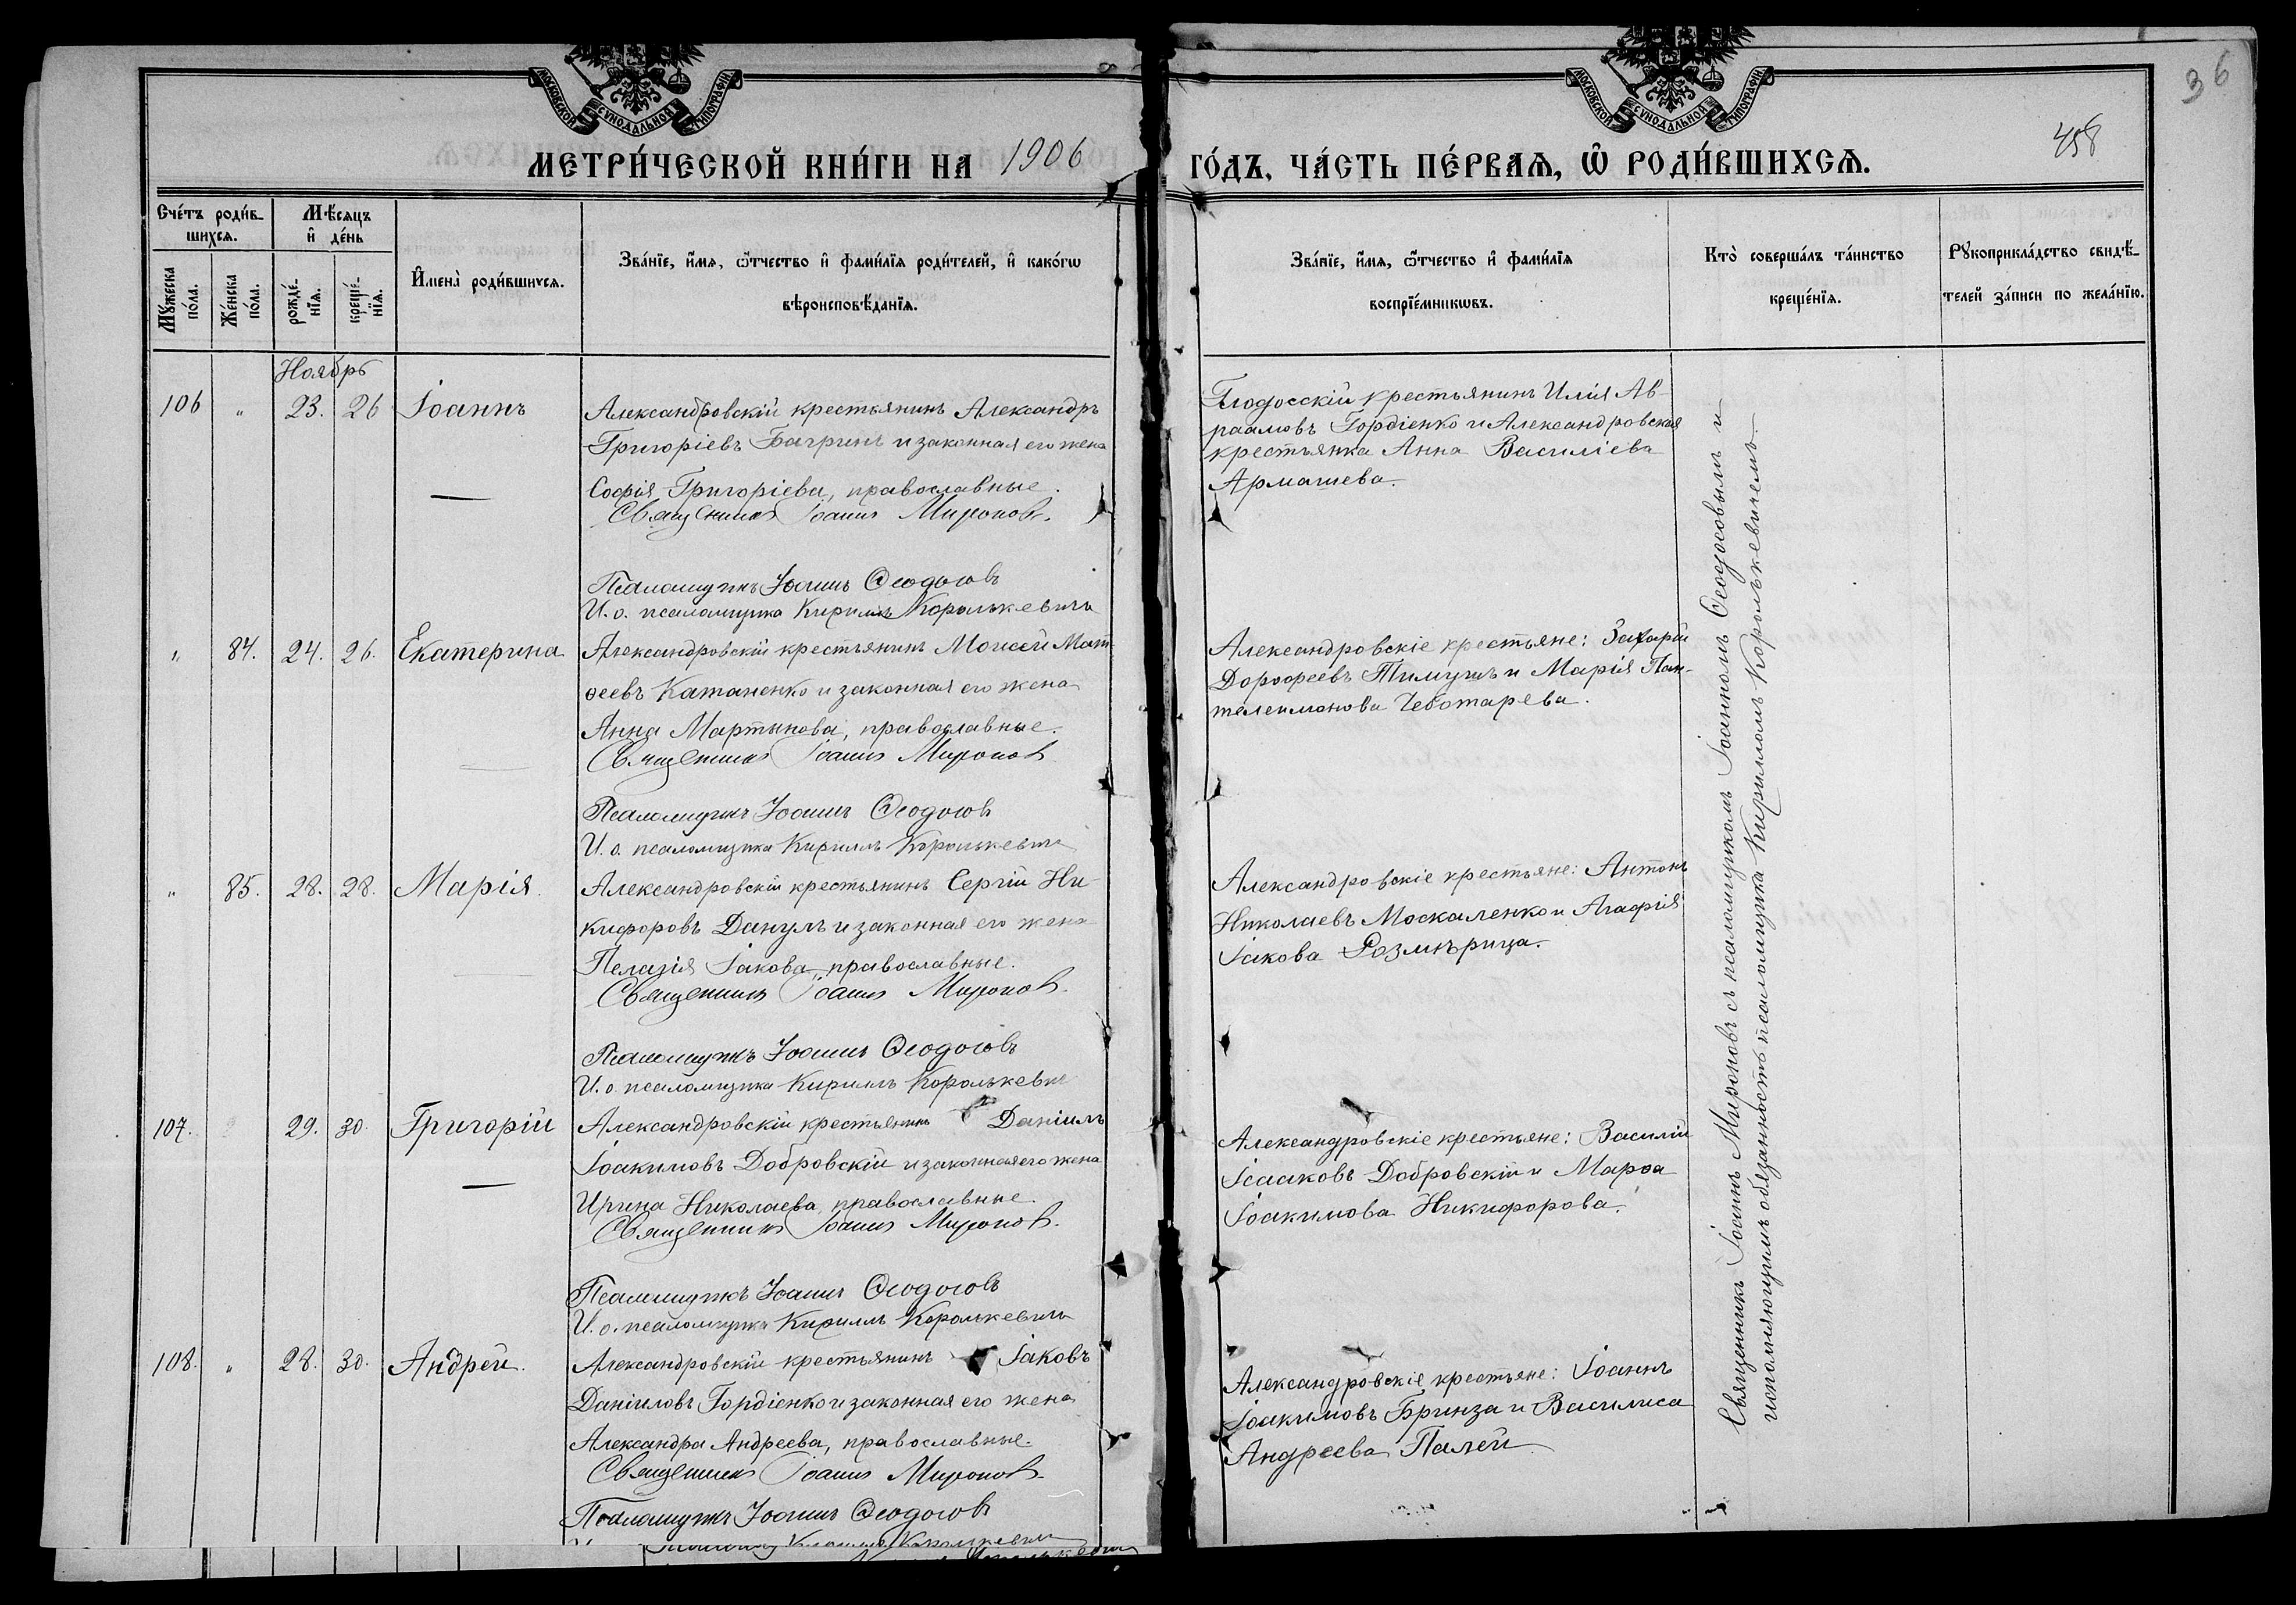 36
458
МОСКОВСКОЙ СѴНОДАЛЬНОЙ ТИПОГРАФІИ
МОСКОВСКОЙ СѴНОДАЛЬНОЙ ТИПОГРАФІИ
МЕТРИ́ЧЕСКОЙ КНИ́ГИ НА 1906 ГО́ДЪ, ЧА́СТЬ ПЕ́РВАЯ, Ѡ РОДИ́ВШИХСЯ.
Сче́тъ роди́в-
шихся.
Мѣ́сяцъ
и҆ де́нь
Мꙋ́жеска
по́ла.
Же́нска
по́ла.
рожде́-
нїя.
креще́-
нїя.
И҆мена̀ роди́вшихся.
Зва́нїе, и҆́мя, ѻ҆́тчество и҆ фами́лїя роди́телей, и҆ како́гѡ
вѣроисповѣ́данїя.
Зва́нїе, и҆́мя, ѻ҆́тчество и҆ фами́лїя
воспрїе́мникѡвъ.
Кто̀ соверша́лъ та́инство
креще́нїя.
Рꙋкоприкла́дство свидѣ́-
телей за́писи по жела́нїю.
Ноябрь
106 " 23. 26 Іоаннъ
Александровскій крестьянинъ Александръ
Григоріевъ Багринъ и законная его жена
Софія Григоріева, православные.
Священникъ Іоаннъ Мироновъ.
Псаломщикъ Іоаннъ Ѳеодосовъ
И. о. псаломщика Кириллъ Королькевичъ
Глодосскій крестьянинъ Илія Ав-
раамовъ Гордіенко и Александровская
крестьянка Анна Василіева
Армашева.
" 84. 24. 26. Екатерина
Александровскій крестьянинъ Моисей Мат-
ѳеевъ Катаненко и законная его жена
Анна Мартынова, православные.
Священникъ Іоаннъ Мироновъ
Псаломщикъ Іоаннъ Ѳеодосовъ
И. о. псаломщика Кириллъ Королькевичъ
Александровскіе крестьяне: Захарій
Дороѳеевъ Тимушъ и Марія Пан-
телеимонова Чеботарева.
" 85. 28. 28. Марія
Александровскій крестьянинъ Сергій Ни-
кифоровъ Данулъ и законная его жена
Пелагія Іакова, православные.
Священникъ Іоаннъ Мироновъ.
Псаломщикъ Іоаннъ Ѳеодосовъ
И. о. псаломщика Кириллъ Королькевичъ
Александровскіе крестьяне: Антонъ
Николаевъ Москаленко и Агафія
Іакова Розмѣрица.
107. 29. 30. Григорій
Александровскій крестьянинъ Даніилъ
Іоакимовъ Добровскій и законная его жена
Ирина Николаева, православные.
Священникъ Іоаннъ Мироновъ.
Псаломщикъ Іоаннъ Ѳеодосовъ
И. о. псаломщика Кириллъ Королькевичъ
Александровскіе крестьяне: Василій
Ісааковъ Добровскій и Марѳа
Іоакимова Никифорова.
108. " 28. 30. Андрей.
Александровскій крестьянинъ Іаковъ
Даніиловъ Гордіенко и законная его жена
Александра Андреева, православные.
Священникъ Іоаннъ Мироновъ.
Псаломщикъ Іоаннъ Ѳеодосовъ
Александровскіе крестьяне: Іоаннъ
Іоакимовъ Бринза и Василиса
Андреева Палей
Священникъ Іоаннъ Мироновъ съ псаломщикомъ Іоанномъ Ѳеодосовымъ и
исполняющимъ обязанность псаломщика Кирилломъ Королькевичемъ